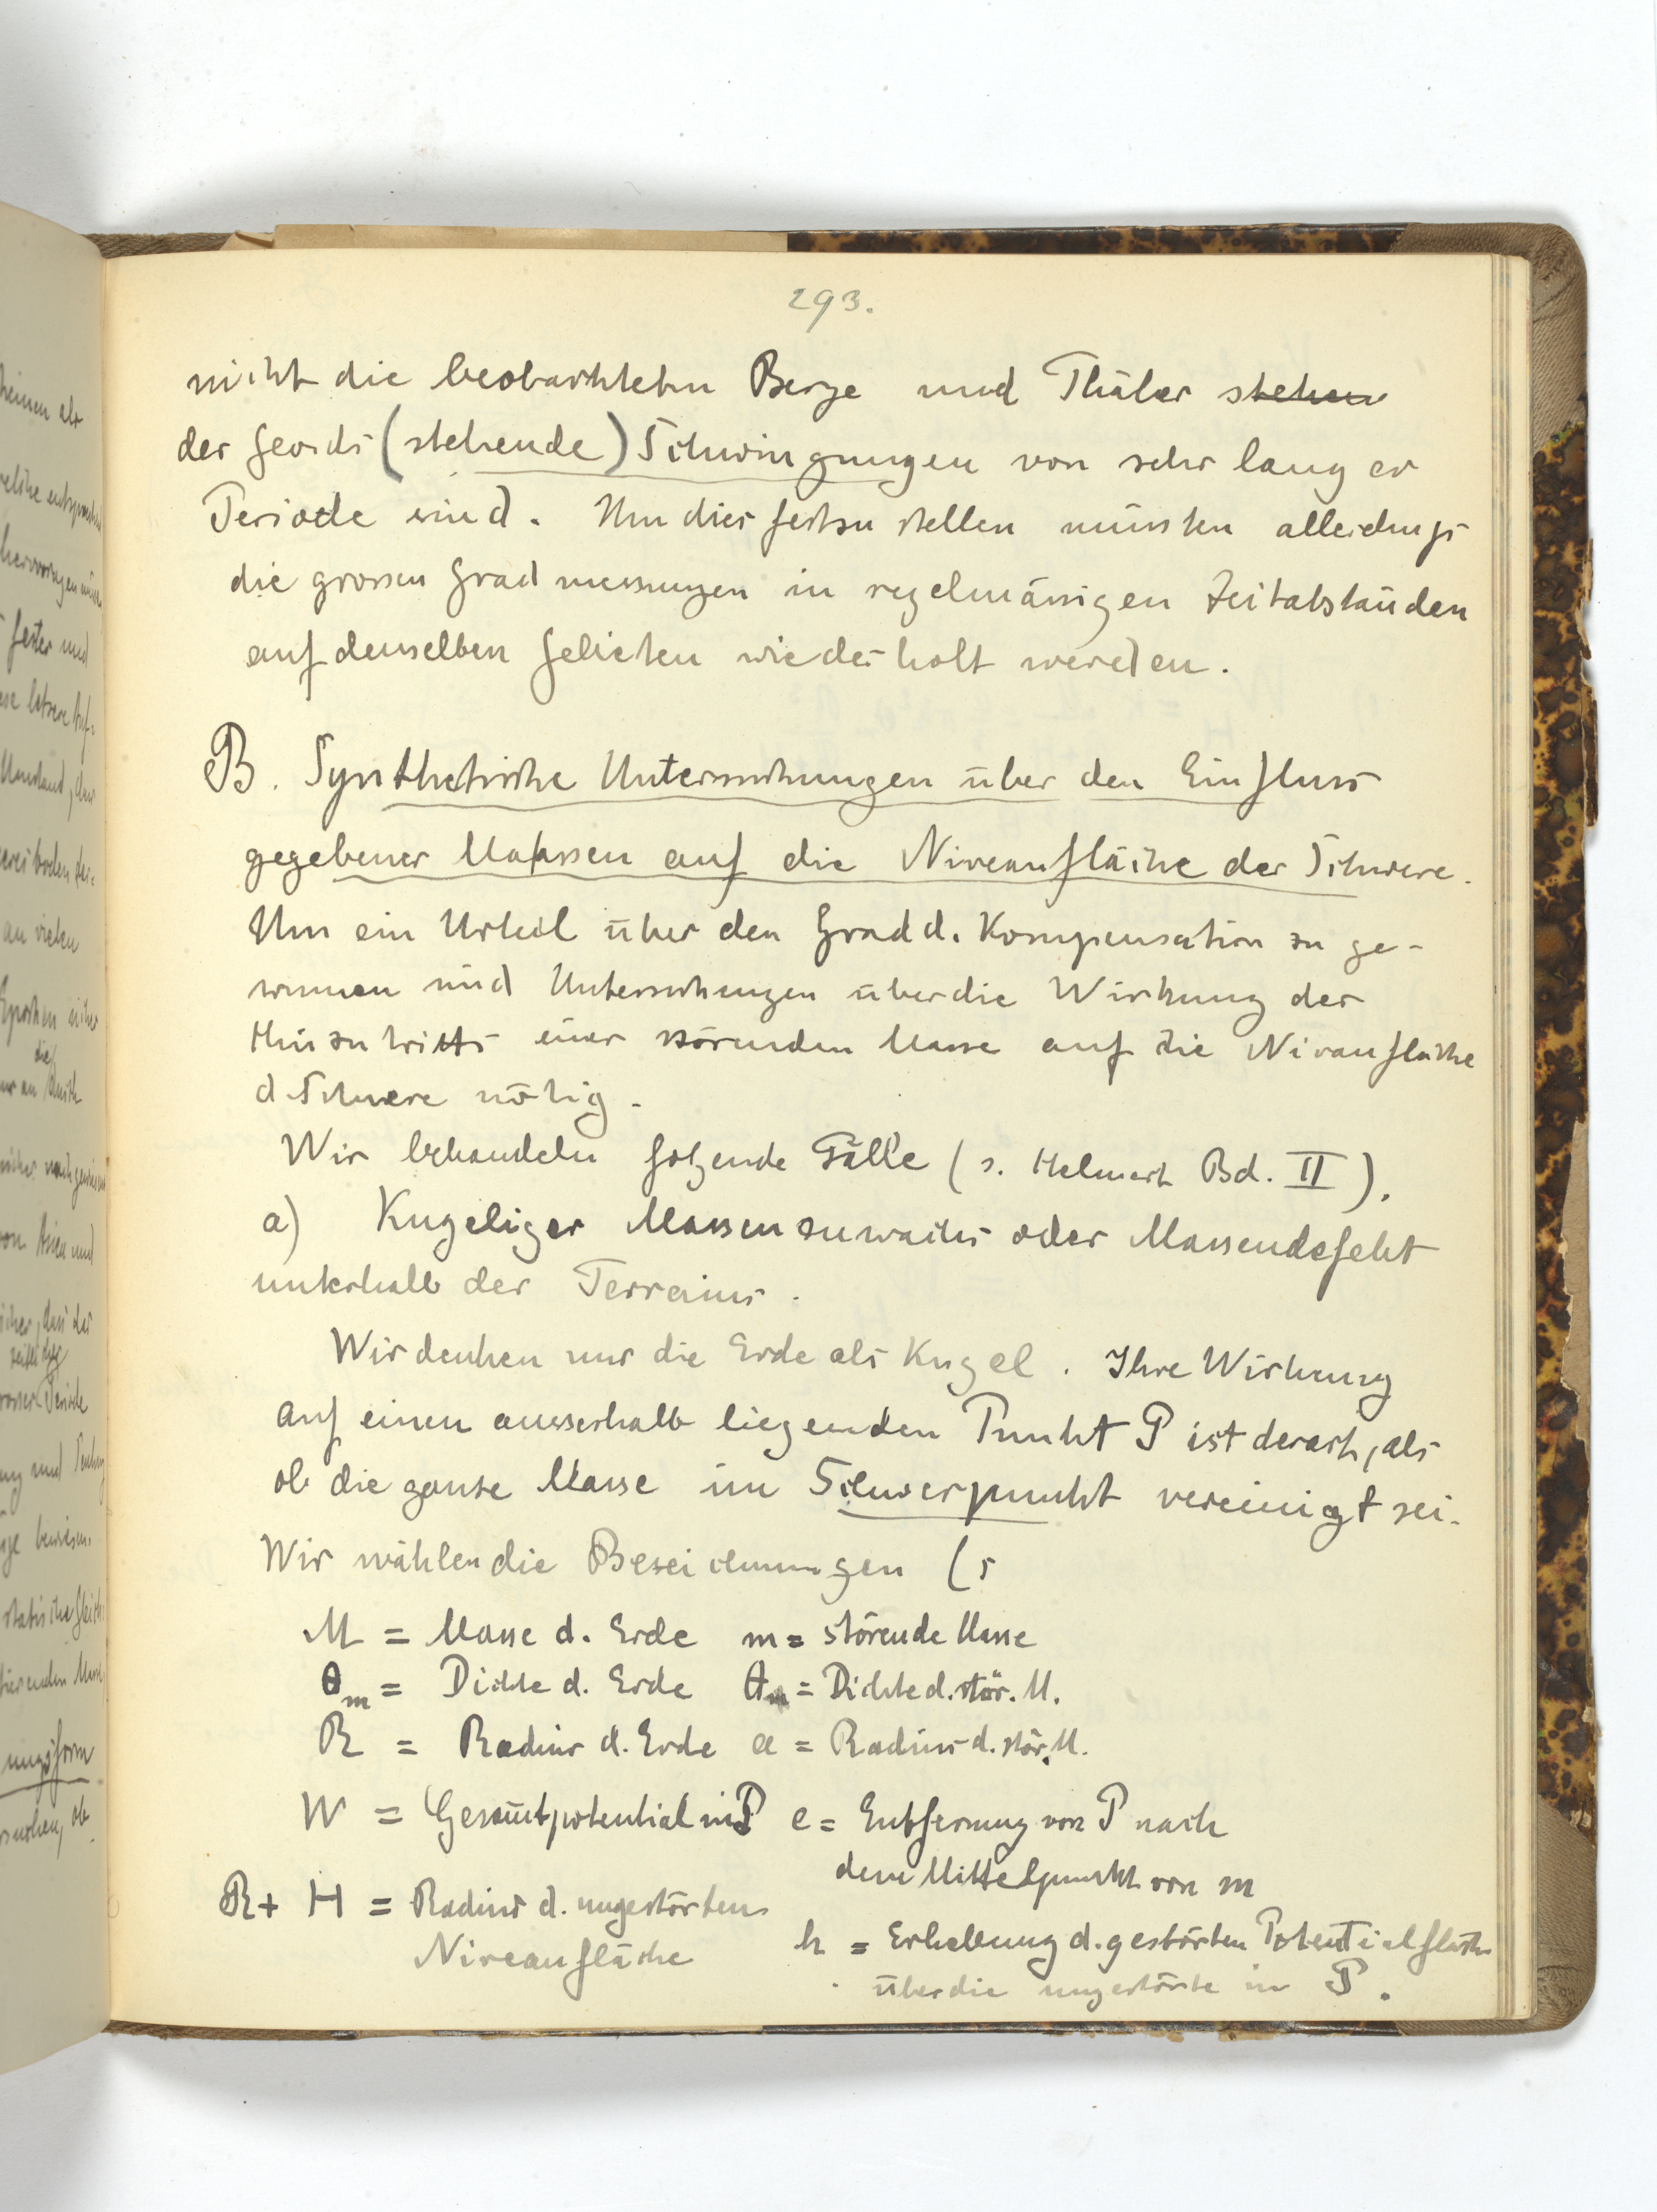 293.
nicht die beobachteten Berge und Thäler stehen
des Geoids (stehende) Schwingungen von sehr langer
Periode sind. Um dies festzustellen müssten allerdings
die grossen Gradmessungen in regelmässigen Zeitabständen
auf denselben Gebieten wiederholt werden.
B. Synthetische Untersuchungen über den Einfluss
gegebener Massen auf die Niveaufläche der Schwere.
Um ein Urteil über den Grad d. Kompensation zu ge-
winnen sind Untersuchungen über die Wirkung des
Hinzutritts einer störenden Masse auf die Nivaufläche
d Schwere nötig.
Wir behandeln folgende Fälle (s. Helmert Bd. II).
a) Kugeliger Massenzuwachs oder Massendefekt
unterhalb des Terrains.
Wir denken uns die Erde als Kugel. Ihre Wirkung
auf einen ausserhalb liegenden Punkt P ist derart, als
ob die ganze Masse im Schwerpunkt vereinigt sei.
Wir wählen die Bezeichnungen (s
M = Masse d. Erde m = störende Masse
θm = Dichte d. Erde θ = Dichte d. stör. M.
R = Radius d. Erde a = Radius d. stör. M.
W = Gesamtpotential in P e = Entfernung von P nach
dem Mittelpunkt von m
R + H = Radius d. ungestörten
Niveaufläche
h = Erhebung d. gestörten Potentialfläche
über die ungestörte in P.